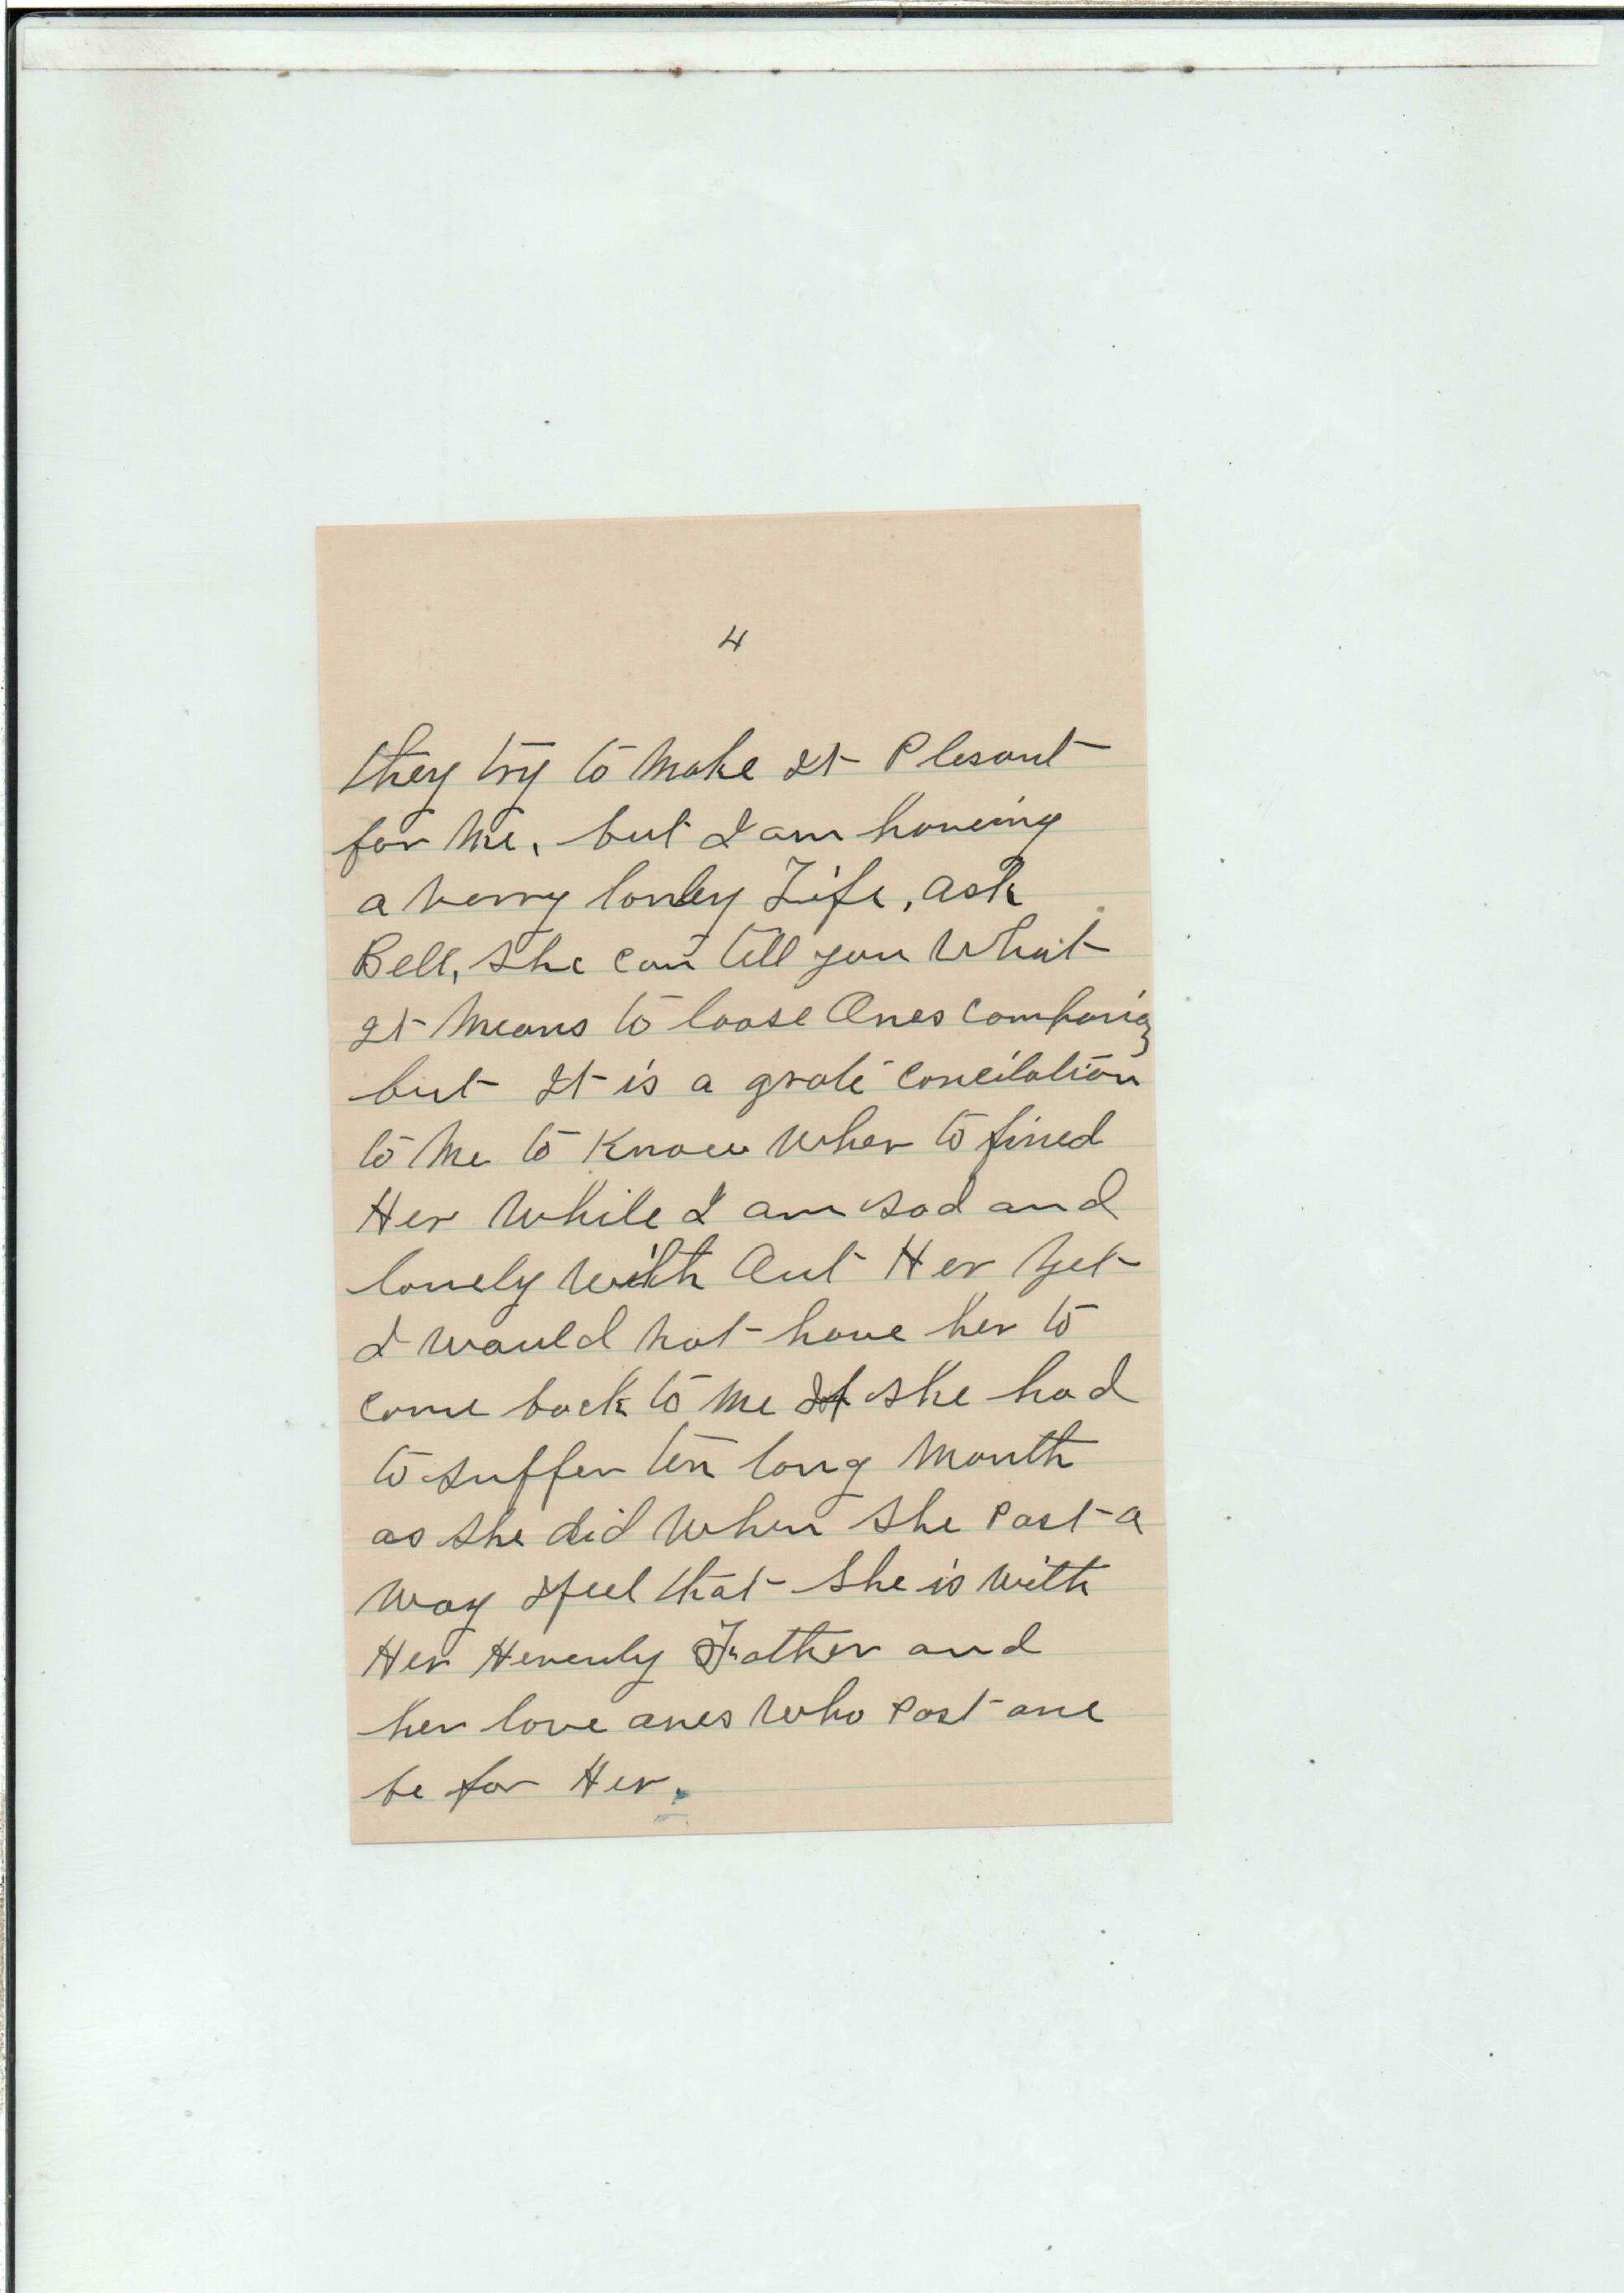 4
they try to make It Plesant
for me, but I am haveing
a verry lonley Life, ask
Bell, she can tell you What
It means to loose Ones company
but It is a grate concilation
to me to Know wher to fined
Her while I am sad and
lonely with Out Her yet
I would not have her to
come back to me If she had
to suffer ten long month
as she did when she past a
way I feel that she is with
Her Hevenly Father and
her love ones who past one
be for Her.